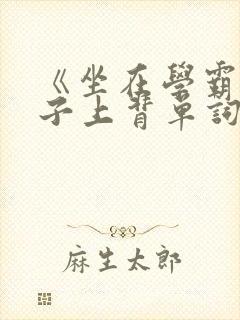 《坐在學霸
子上背單詞
麻生太郎